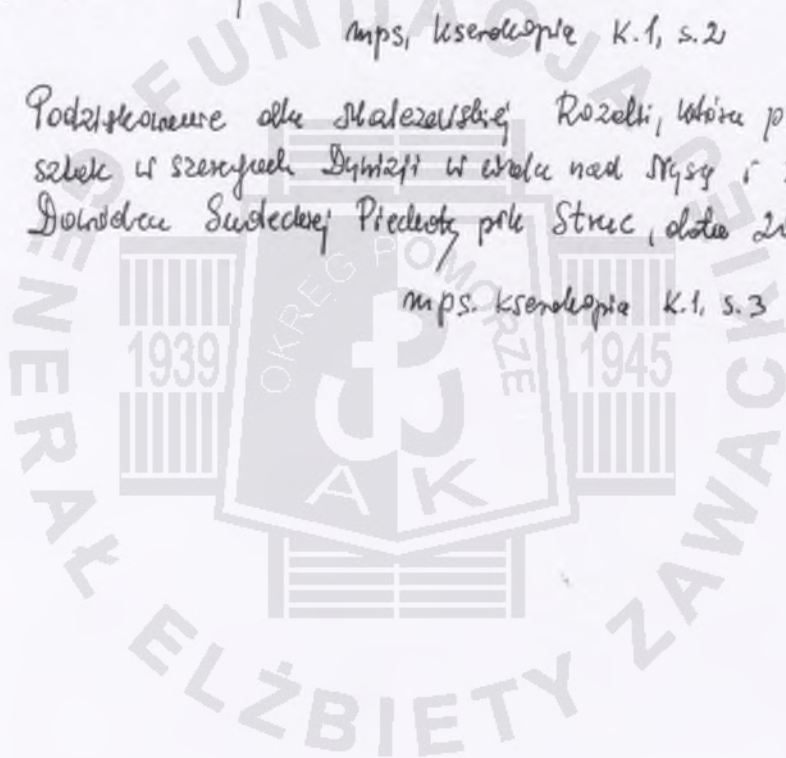 mps, kserokopia K.1, s.2
Podziękowanie dla Malczewskiej Rozalii, która p
szlak w szeregach Dywizji w walce nad Nysą i
Dowódca Sudeckiej Piechoty płk Struc, data 2
mps. kserokopia K.1, s.3
FUNDACJA
GENERAŁ ELŻBIETY ZAWACKIE
OKRĘG POMORZE
1939
1945
AK